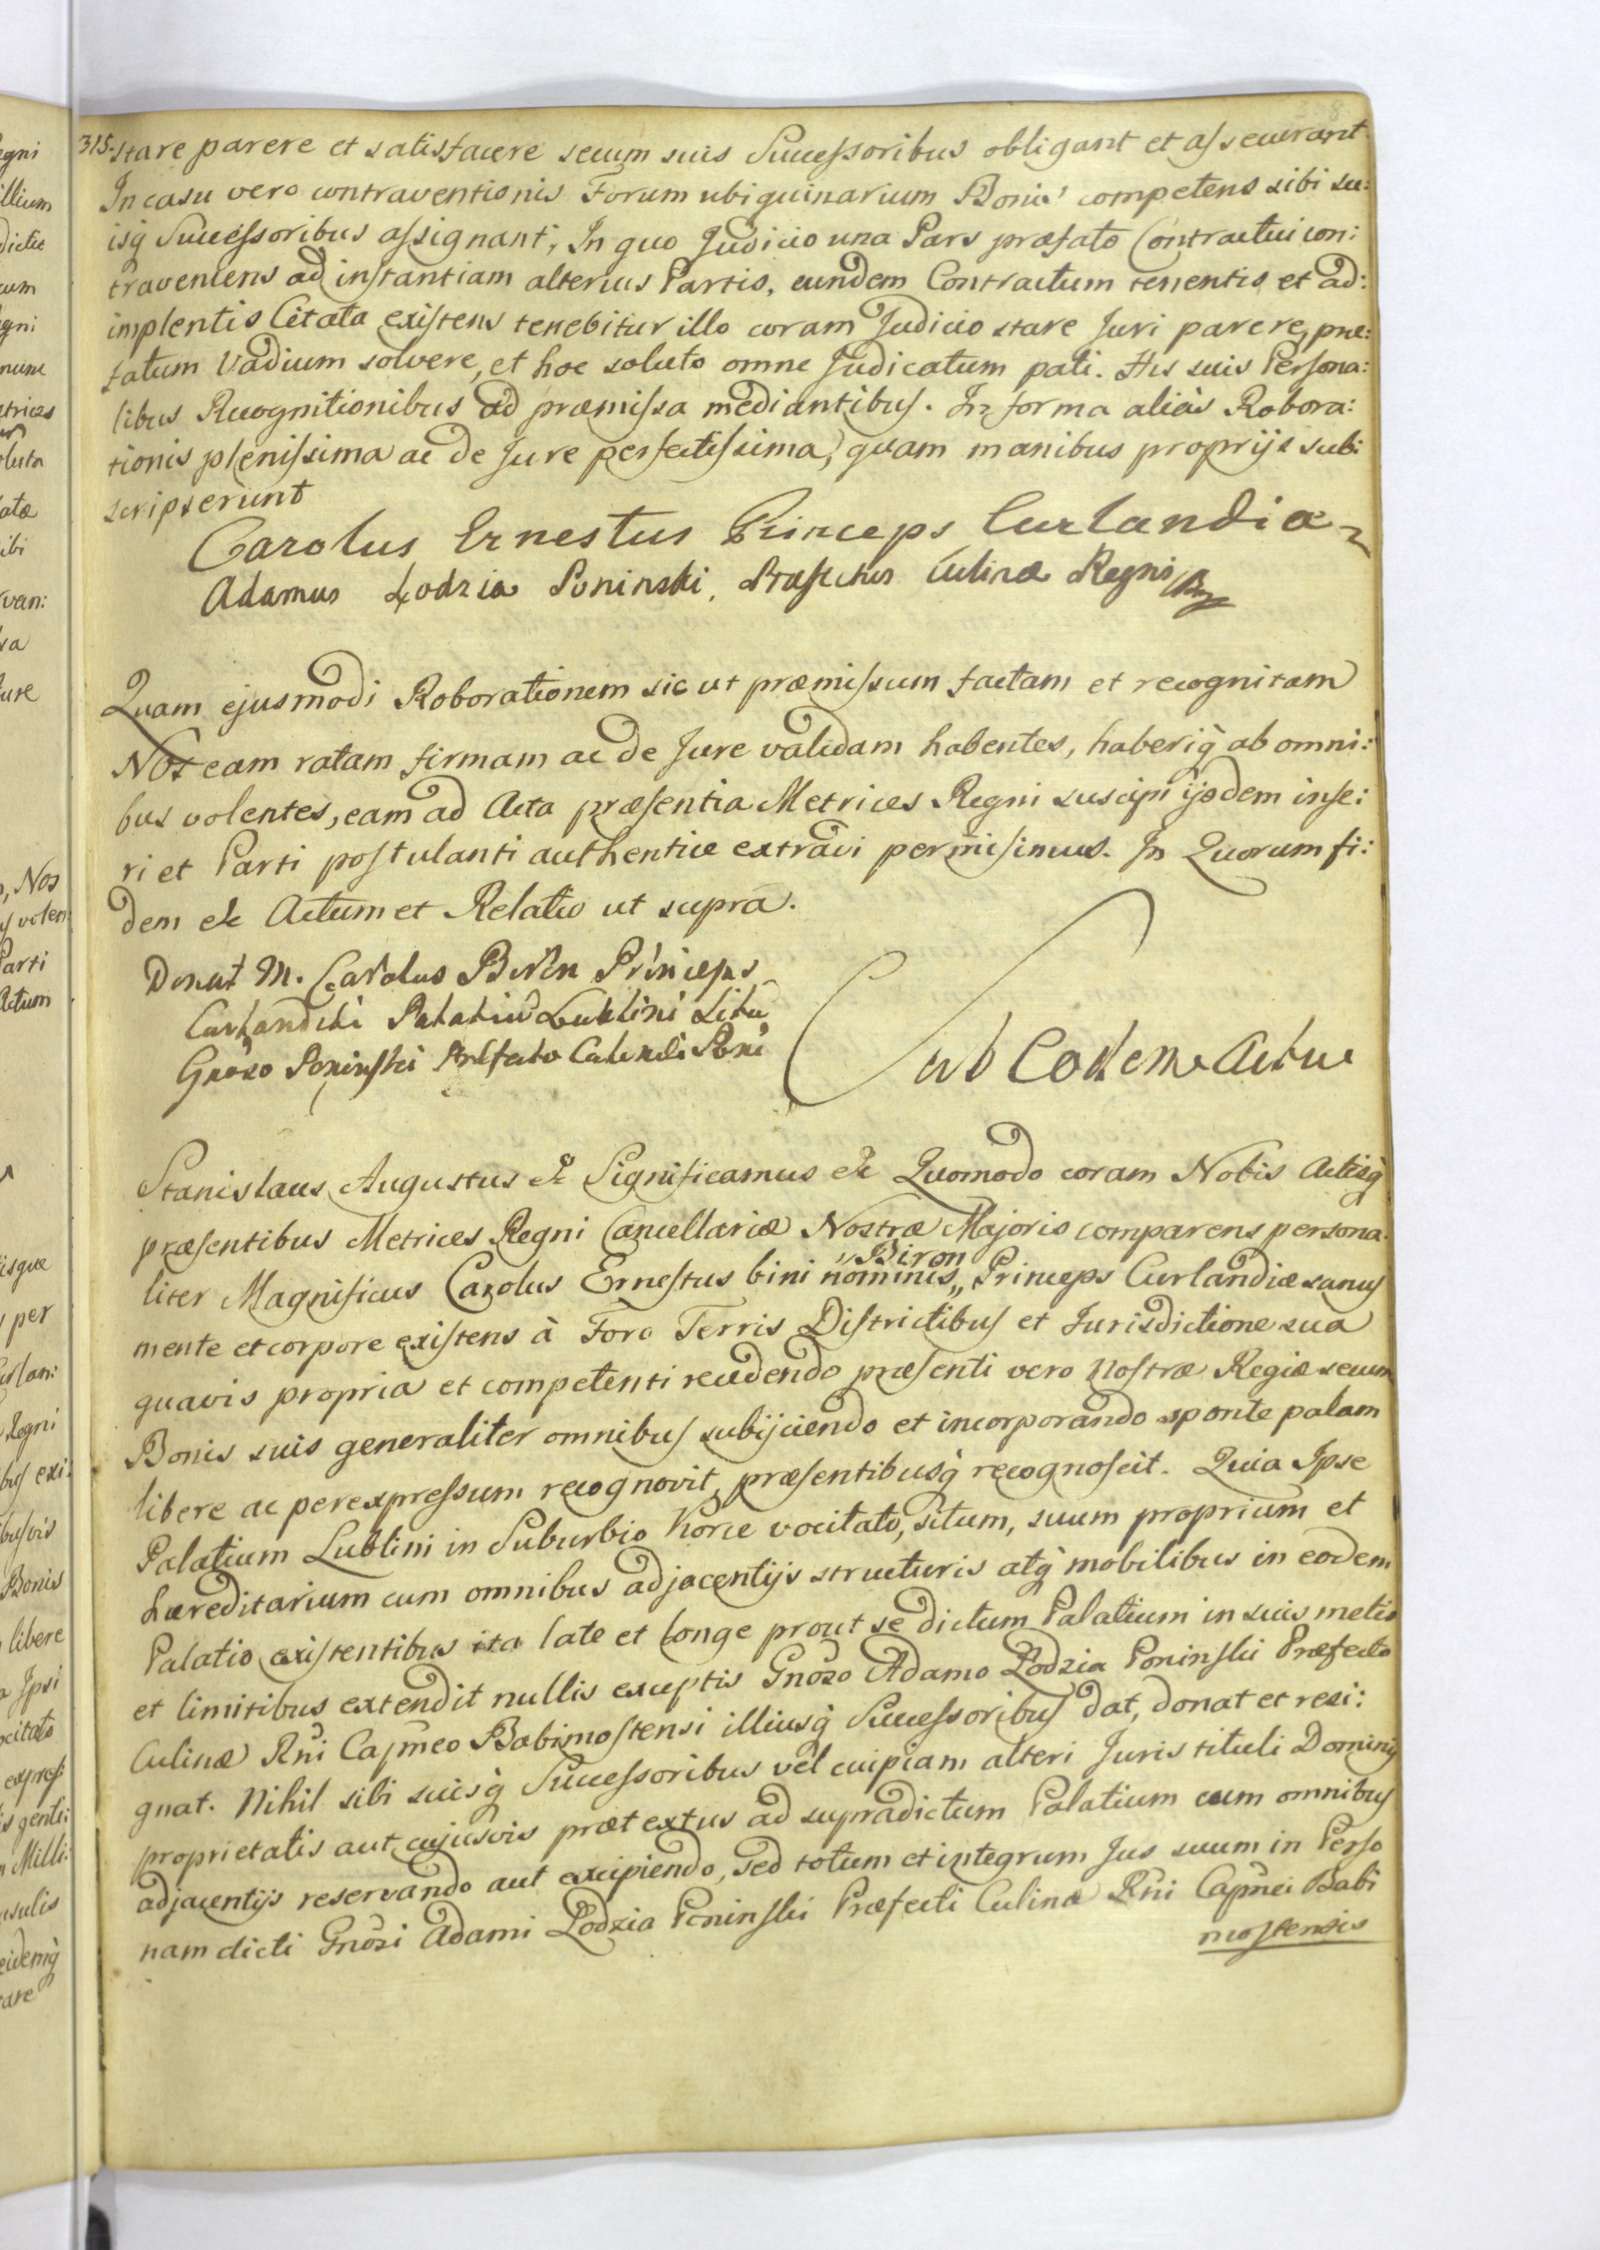 315. stare parere et satisfacere secum suis Successoribus obligant et asseverant
In casu vero contraventionis Forum ubiquinarium Bonis competens sibi su:
isq̃ Successoribus assignant, In quo Judicio una Pars præfato Contractui con:
traveniens ad instantiam alterius Partis, eundem Contractum tenentis et ad:
implentis Citata existens tenebitur illo coram Judicio stare Juri parere, præ:
fatum Vadium solvere, et hoc soluto omne Judicatum pati. His suis Persona:
libus Recognitionibus ad præmissa mediantibus. In forma alias Robora:
tionis plenissima ac de Jure perfectissima, quam manibus proprijs sub:
scripserunt
Carolus Ernestus Princeps Curlandiæ
Adamus Łodzia Poninski, Præfectus Culinæ Regni
Quam ejusmodi Roborationem sic ut præmissum factam et recognitam
Nos eam ratam firmam ac de Jure validam habentes, haberiq̃ ab omni:
bus volentes, eam ad Acta præsentia Metrices Regni suscipi ijsdem inse:
ri et Parti postulanti authentice extradi permisimus. In Quorum fi:
dem &c Actum et Relatio ut supra.
Donat M. Carolus Biren Princeps
Curlandiki Palatiũ Lublini Litu
Gnõso Poninski Præfecto Culinæ
Sub Eodem Actu
Stanislaus Augustus &c Significamus &c Quomodo coram Nobis Actisq̃
præsentibus Metrices Regni Cancellariæ Nostræ Majoris comparens persona:
liter Magnificus Carolus Ernestus bini nominis „Biron„ Princeps Curlandiæ sanus
mente et corpore existens à Foro Terris Districtibus et Jurisdictione sua
quavis propria et competenti recedendo præsenti vero Nostræ Regiæ secum
Bonis suis generaliter omnibus subijciendo et incorporando sponte palam
libere ac per expressum recognovit, præsentibusq̃ recognoscit. Quia Ipse
Palatium Lublini in Suburbio Korce vocitato, situm, suum proprium et
hæreditarium cum omnibus adjacentijs structuris atq̃ mobilibus in eodem
Palatio existentibus ita late et longe prout se dictum Palatium in suis metis
et limitibus extendit nullis exceptis Gnõso Adamo Łodzia Poninski Præfecto
Culinæ Rñi Capñeo Babimostensi illiusq̃ Successoribus dat, donat et resi:
gnat. Nihil sibi suisq̃ Successoribus vel cuipiam alteri Juris tituli Dominij
proprietatis aut cujusvis prætextus ad supradictum Palatium cum omnibus
adjacentijs reservando aut excipiendo, sed totum et integrum Jus suum in Perso
nam dicti Gnõsi Adami Łodzia Poninski Præfecti Culinæ Rñi Capñei Babi
mostensis